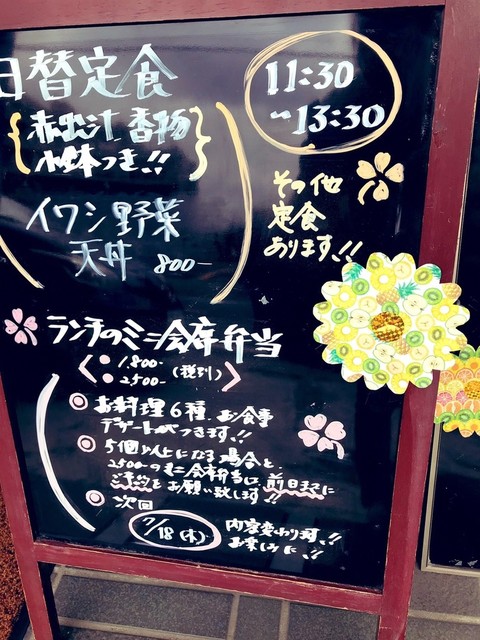 日替定食
11:30
〜13:30
赤出汁 香物
小鉢つき!!
その他
定食
あります!!
イワシ野菜
天丼 800-
ランチのミニ会席弁当
1,800-
2500- (税別)
お料理6種、お食事
デザートがつきます!!
5個以上になる場合と
2500-のミニ会席弁当は、前日までに
ご予約をお願い致します!!
次回
7/18(木)
内容変わります!!
お楽しみに!!